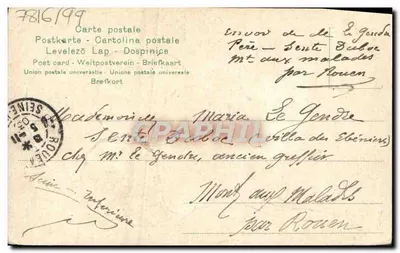 7816/99
Carte postale
Postkarte - Cartolina postale
Levelező Lap - Dopisnice
Post card - Weltpostverein - Briefkaart
Union postale universelle - Unione postale universale
Brefkort
envoi de Mr Le Gendre
Père - Sente
Mt aux malades
par Rouen
ROUEN
SEINE
Mademoiselle Maria Le Gendre
Sente villa des Ebéniers
chez Mr le Gendre, ancien greffier
Mont aux Malades
par Rouen
Seine Inférieure
CARTE-POSTALE